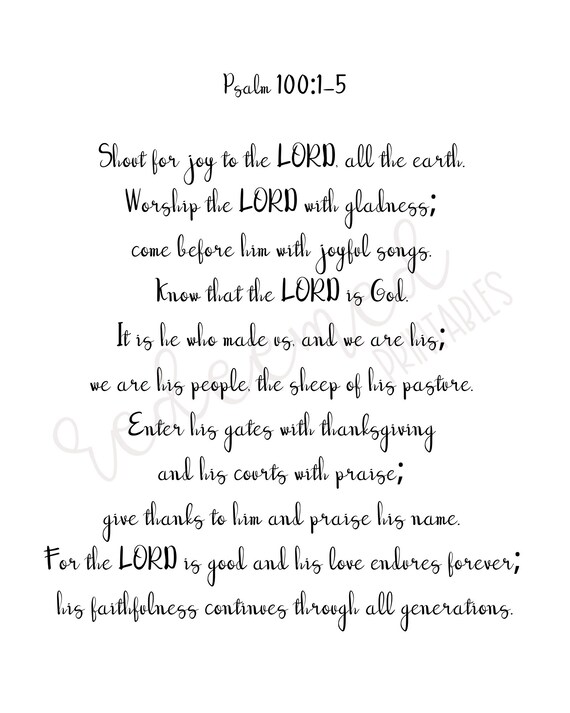 Psalm 100:1-5
Shout for joy to the LORD, all the earth.
Worship the LORD with gladness;
come before him with joyful songs.
Know that the LORD is God.
It is he who made us, and we are his;
we are his people, the sheep of his pasture.
Enter his gates with thanksgiving
and his courts with praise;
give thanks to him and praise his name.
For the LORD is good and his love endures forever;
his faithfulness continues through all generations.
redeemed
PRINTABLES